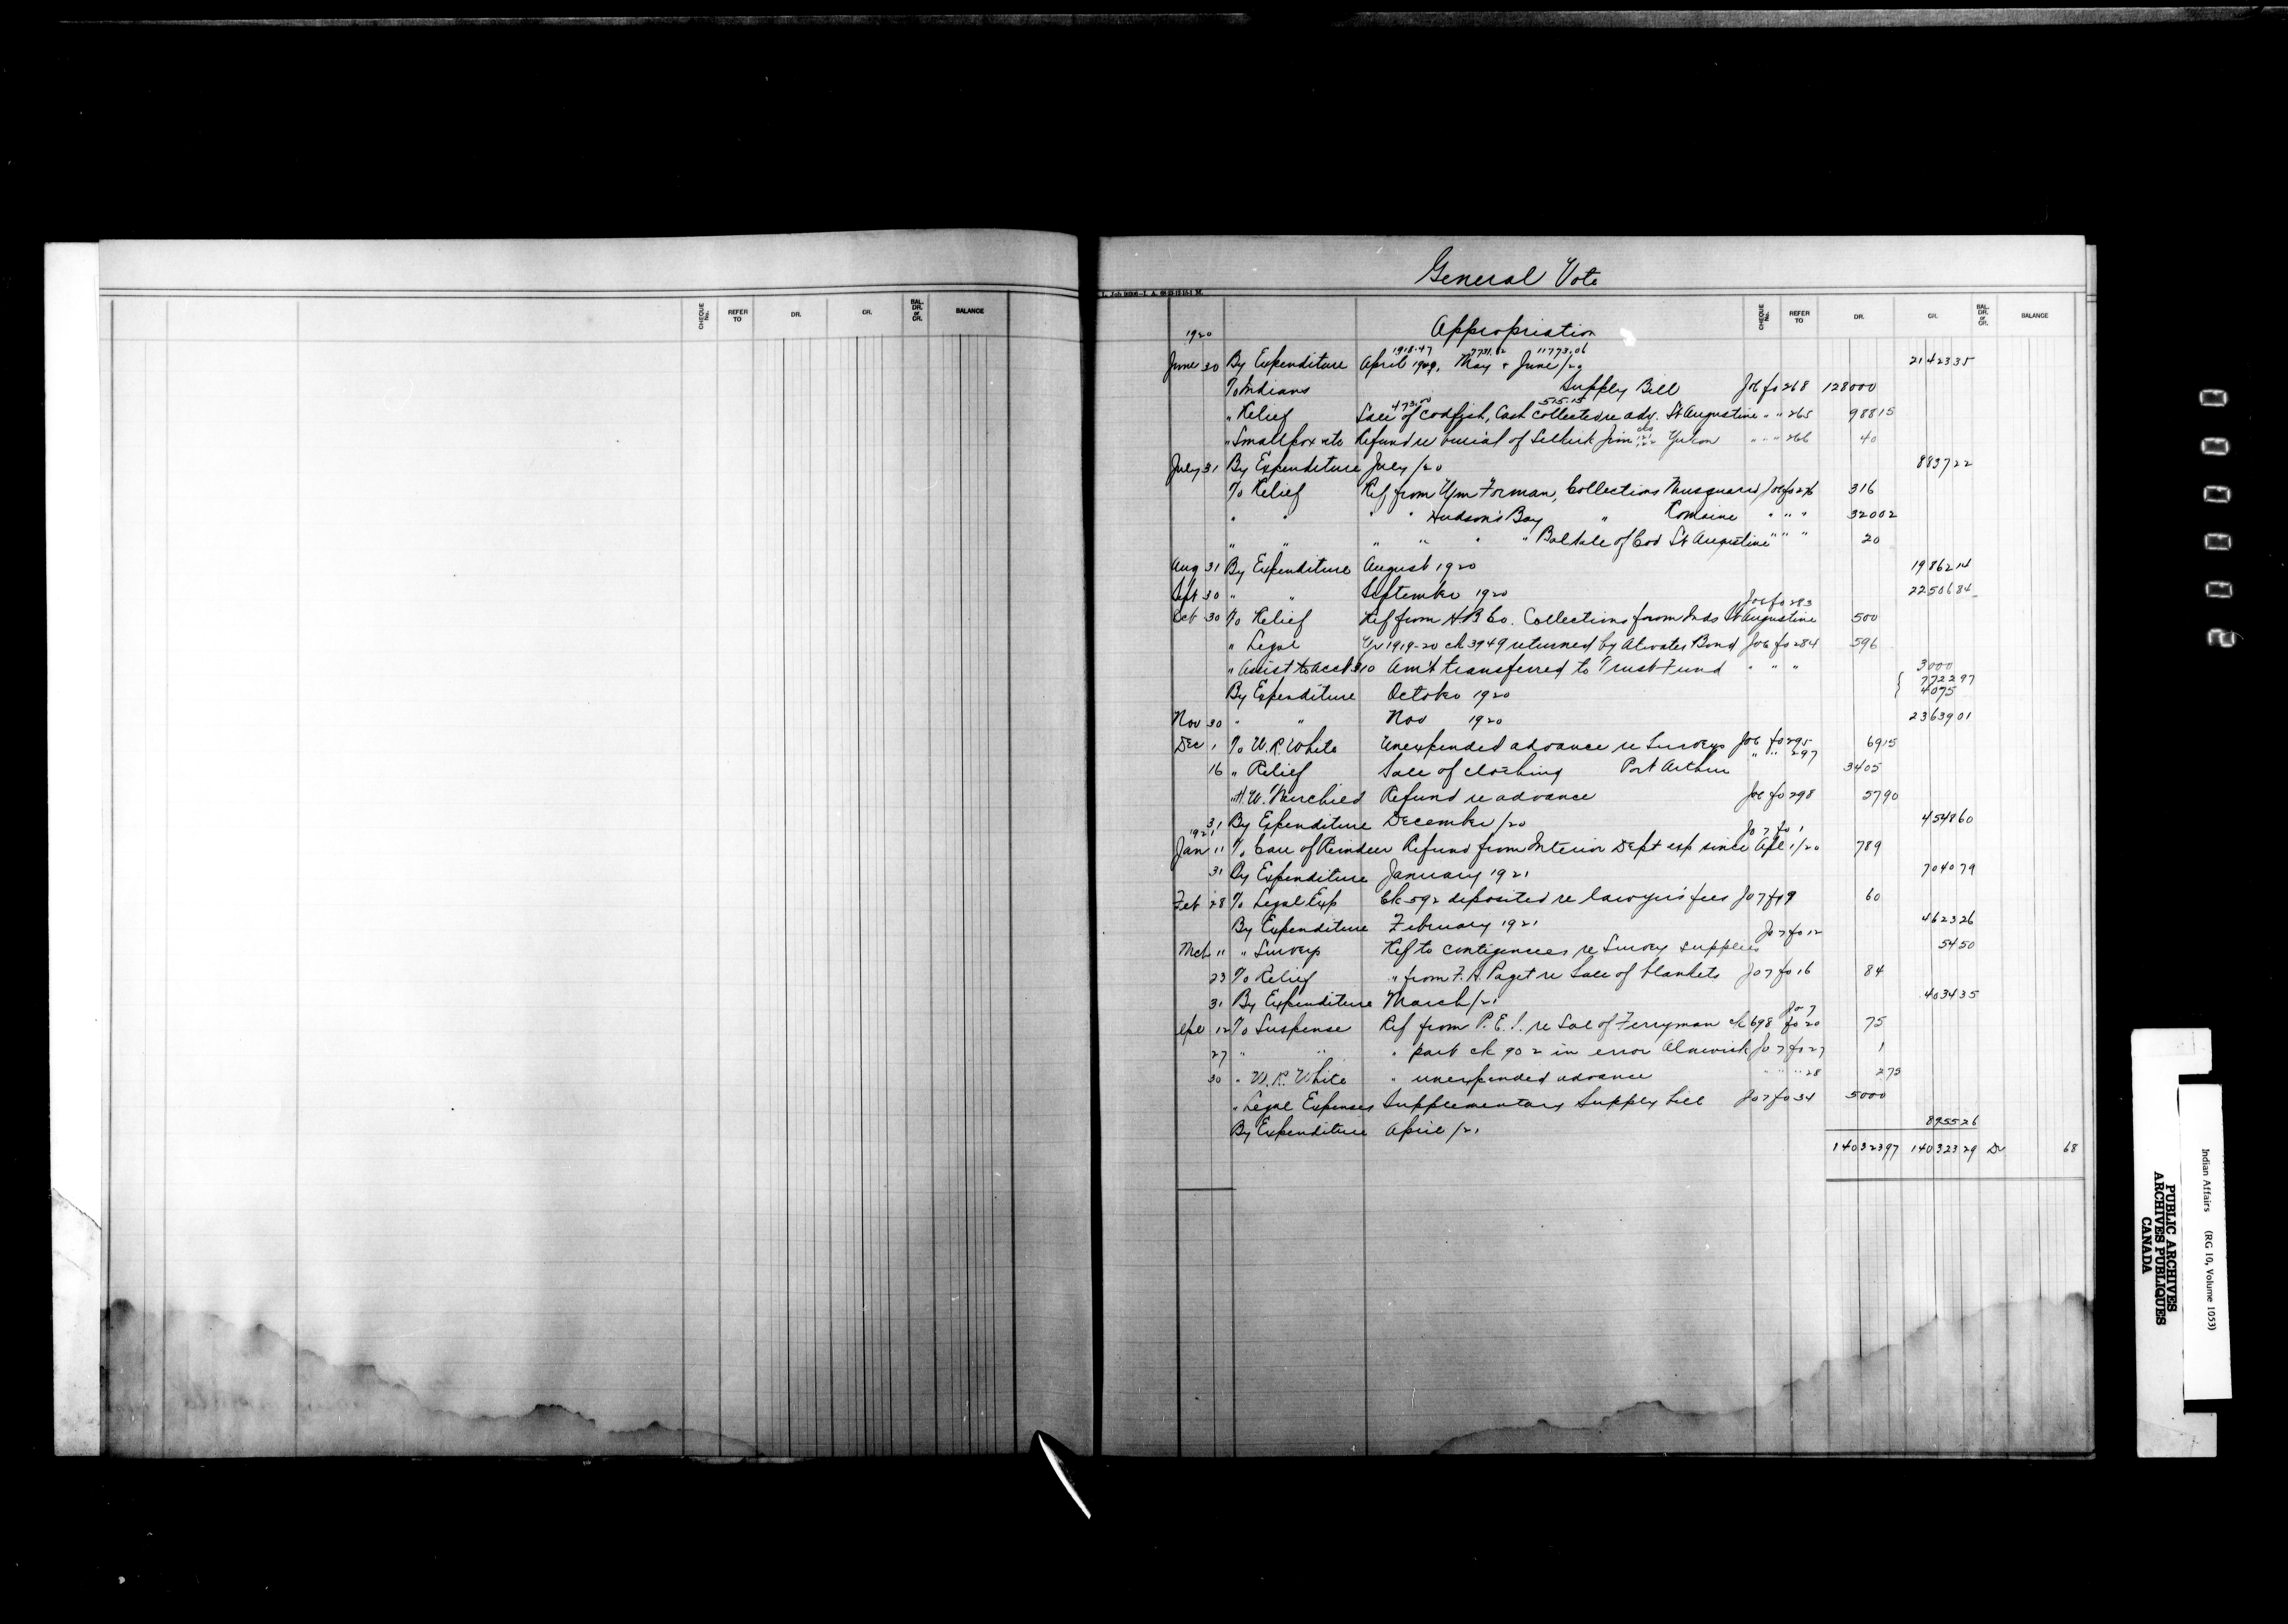 General Vote
L. Job
CHEQUE No. REFER TO DR. CR. BAL. DR. or CR. BALANCE
CHEQUE No. REFER TO DR. CR. BAL. DR. or CR. BALANCE
1920 Appropriation
1918.47 7731.82 11773.06
June 30 By Expenditure April 1920, May & June/20 21423 35
To Indians Supply Bill Jo 6 fo 268 128000
473.00 515.15
" Relief Sale of Codfish, Cash Collected re adv. St Augustine " " 265 988 15
" Smallpox etc Refund re burial of Selkirk Jim Yukon " " " 266 40
July 31 By Expenditure July/20 8837 22
To Relief Ref from Wm Forman, Collections Musquaro Jo 6 fo 276 316
" " " " Hudson's Bay " Romaine " " " 320 02
" " " " " " Bal Sale of Cod St Augustine " " " 20
Aug 31 By Expenditure August 1920 19862 14
Sept 30 " " September 1920 22506 84
Jo 6 fo 283
Oct 30 To Relief Ref from H B Co. Collections from Inds St Augustine 500
" Legal Yr 1919-20 ck 3949 returned by Atwater Bond Jo 6 fo 284 596
" Assist to acct 310 Am't transferred to Trust Fund " " " 3000
By Expenditure October 1920 { 7722 97
40 75
Nov 30 " " Nov 1920 23639 01
Dec 1 To W. R. White Unexpended advance re Surveys Jo 6 fo 295 69 15
16 " Relief Sale of clothing Port Arthur " " 297 3405
" H. W. Refund re advance Jo 6 fo 298 57 90
31 By Expenditure December/20 4548 60
1921 Jo 7 fo 1
Jan 11 To Care of Reindeer Refund from Interior Dept exp since Apl 1/20 789
31 By Expenditure January 1921 7040 79
Feb 28 To Legal Exp Ck 592 deposited re lawyer's fees Jo 7 fo 9 60
By Expenditure February 1921 4623 26
Jo 7 fo 12
Mch 11 " Surveys Ref to contigences re Survey supplies 54 50
23 To Relief " from F. A. Paget re Sale of blankets Jo 7 fo 16 84
31 By Expenditure March/21 4034 35
Jo 7
Apl 12 To Suspense Ref from P. E. I. re Sal of Ferryman ck 698 fo 20 75
27 " " " part ck 902 in error Alnwick Jo 7 fo 27 1
30 " W. R. White " unexpended advance " " " 28 2 75
" Legal Expenses Supplementary Supply bill Jo 7 fo 34 5000
By Expenditure April/21 8955 26
140323 97 140323 29 Dr 68
20000
Indian Affairs (RG 10, Volume 1053)
PUBLIC ARCHIVES
ARCHIVES PUBLIQUES
CANADA